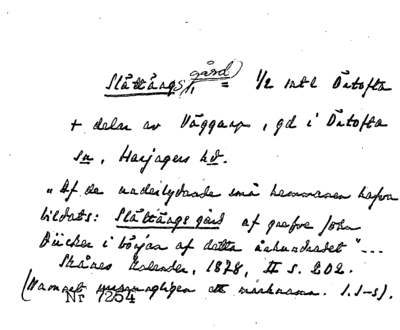 Slättängs(gård) = 1/2 mtl Örtofta
+ delar av Väggarp, gd i Örtofta
sn, Harjagers hd.
"Af de underlydande små hemmanen hafva
bildats: Slättängs gård af grefve John
Dücker i början af detta århundradet"...
Skånes Kalender, 1878, II s. 202.
(Namnet ett marknamn. I.I-s).
Nr 7254